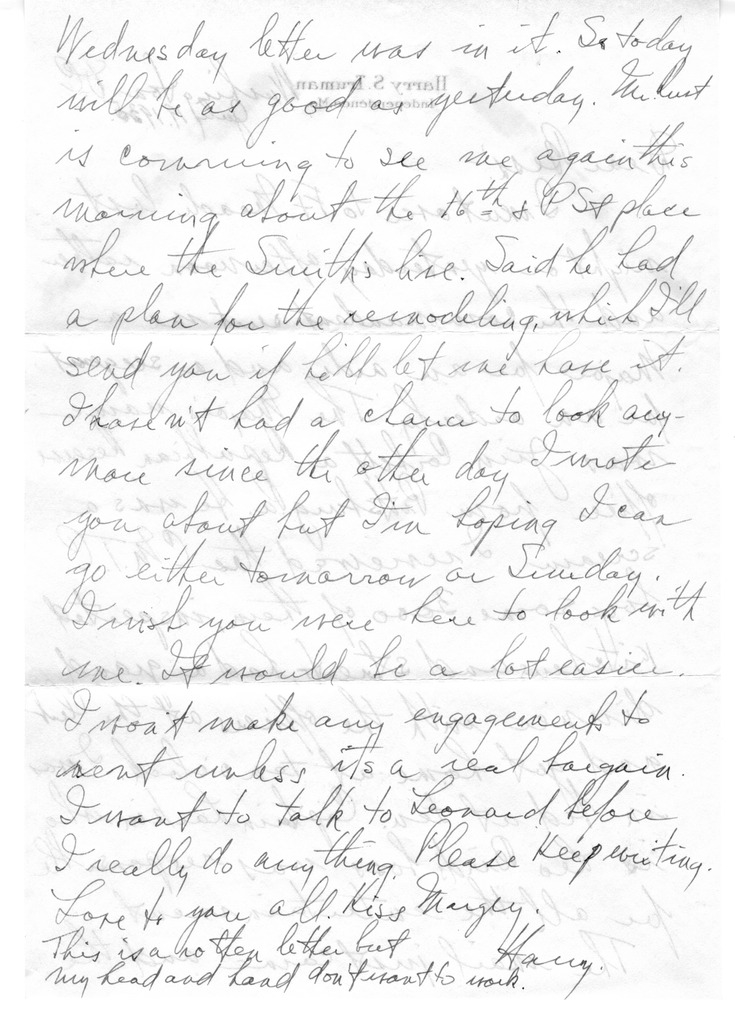 Wednesday letter was in it. So today
will be as good as yesterday. Mr.
is comming to see me again this
morning about the 16th & P St place
where the Smiths live. Said he had
a plan for the remodeling, which I'll
send you if he'll let me have it.
I haven't had a chance to look any-
more since the other day I wrote
you about but I'm hoping I can
go either tomorrow or Sunday.
I wish you were here to look with
me. It would be a lot easier.
I won't make any engagements to
rent unless it's a real bargain.
I want to talk to Leonard before
I really do anything. Please Keep writing.
Love to you all. Kiss Margey.
Harry.
This is a rotten letter but
my head and hand don't want to work.
Harry S. Truman
Independence, Mo.